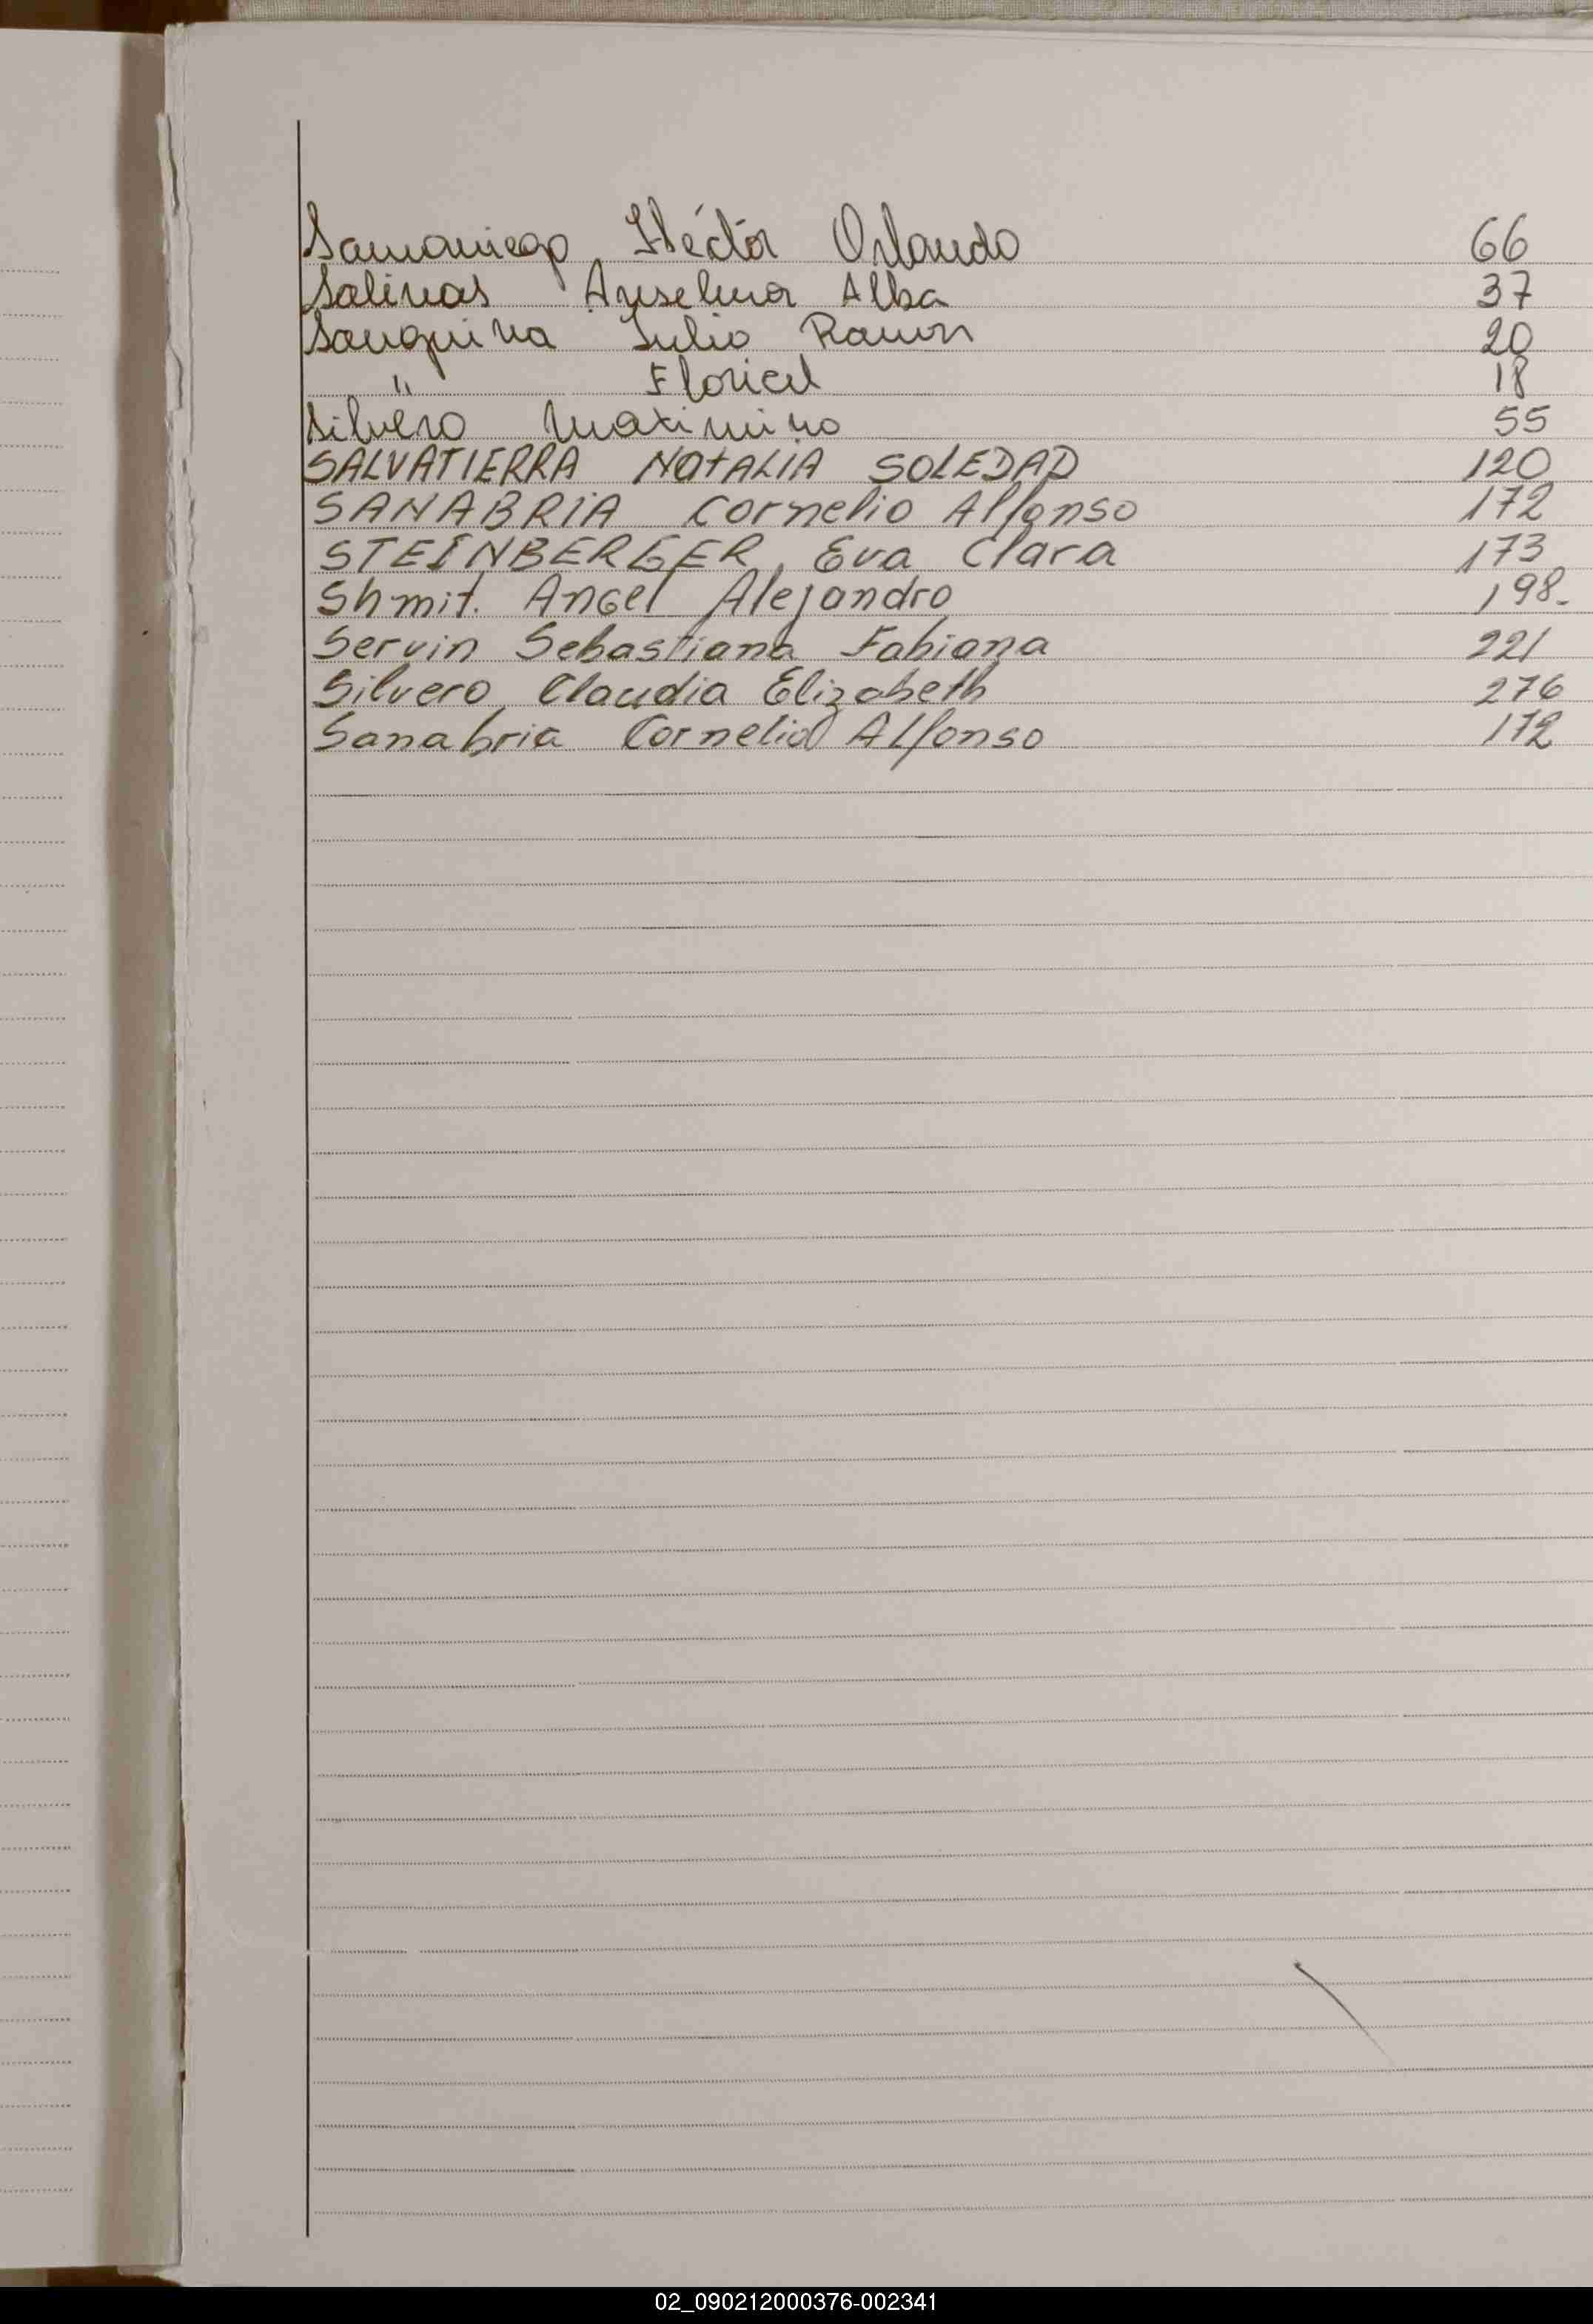 Samaniego Héctor Orlando 66
Salinas Anselma Alba 37
Sanquina Julio Ramon 20
" Floricel 18
Silvero Maximino 55
SALVATIERRA NATALIA SOLEDAD 120
SANABRIA Cornelio Alfonso 172
STEINBERGER, Eva Clara 173
Shmit. Angel Alejandro 198.
Servin Sebastiana Fabiana 221
Silvero, Claudia Elizabeth 276
Sanabria Cornelio Alfonso 172
02_090212000376-002341